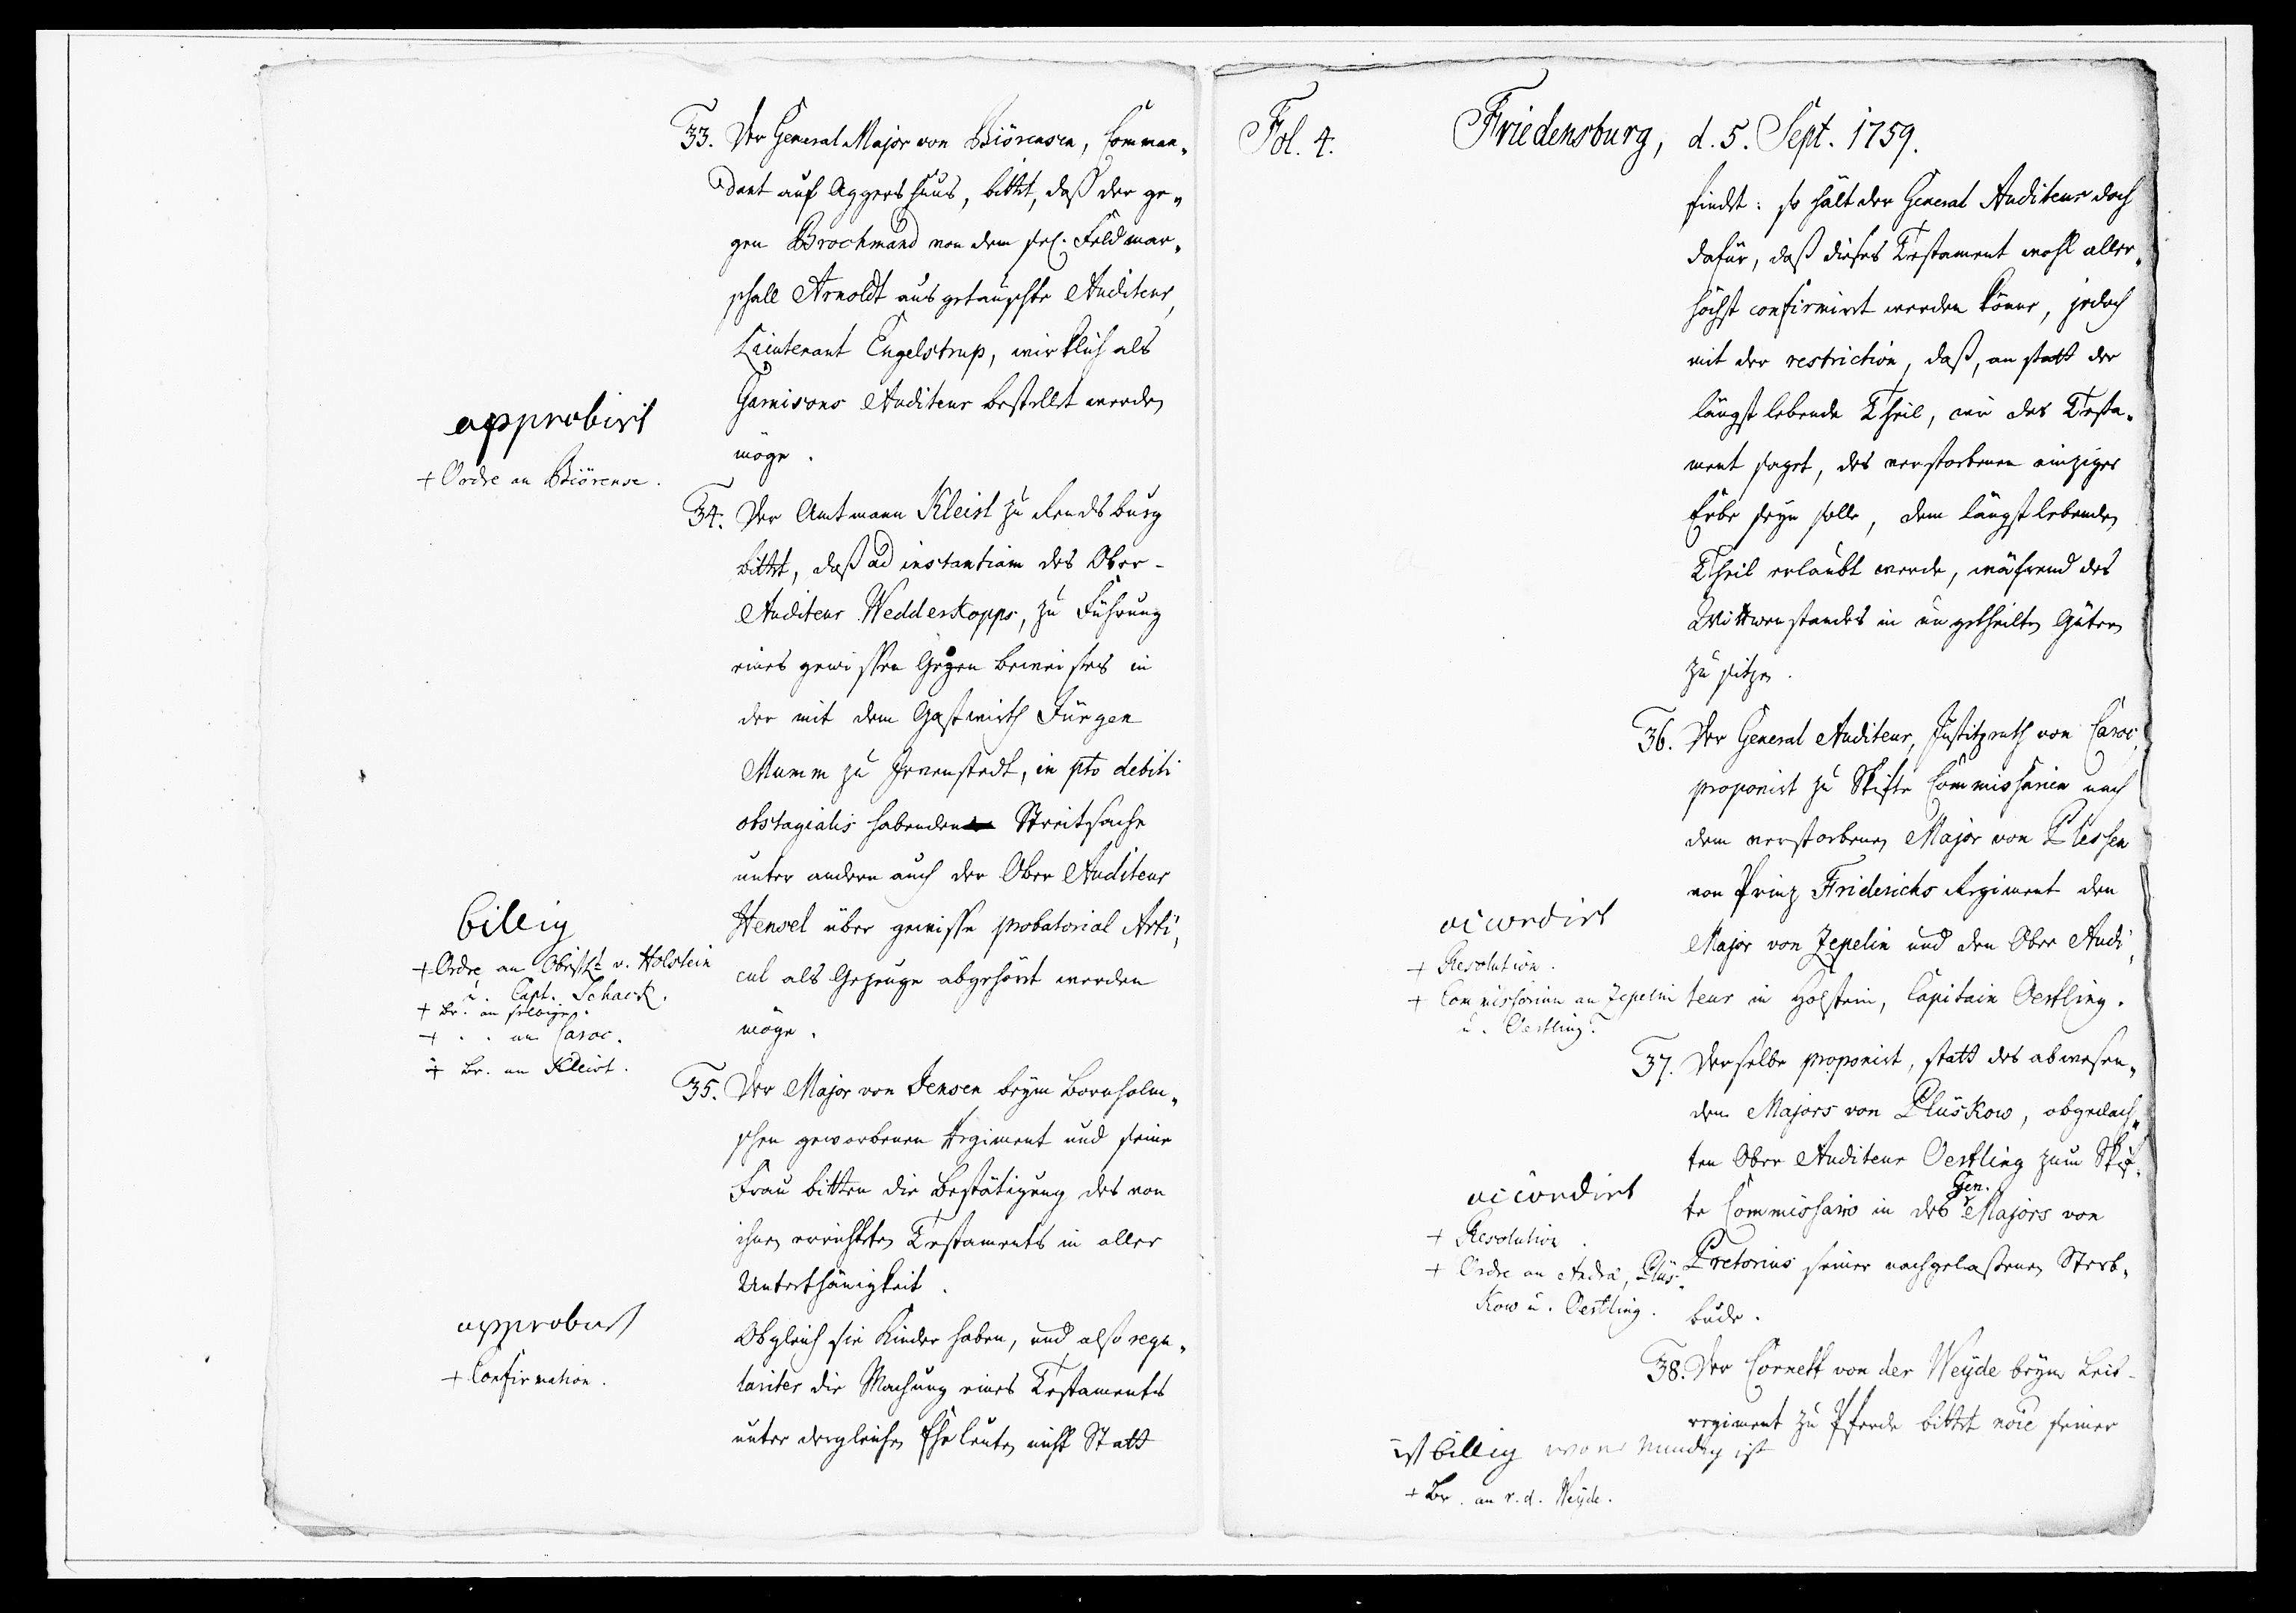 33. Der General Major von Biörensen, Comman„
dant auf Aggershuus, bittet, daß der ge„
gen Brochmand von dem sel. Feldmar„
schall Arnoldt ausgetauschte Auditeur,
Lieutenant Engelstrup, wirklich als
Garnisons Auditeur bestellet werden
möge.
approbirt
+ Ordre an Biörense.
34. Der Amtmann Kleist zu Rendsburg
bittet, daß ad instantiam des Ober-
Auditeur Wedderkopps, zu Führung
eines gewissen Gegen beweises in
der mit dem Gastwirth Jürgen
Mumm zu Jevenstedt, in pto debiti
obstagialis habenden Streitsache
unter andern auch der Ober Auditeur
Hensel über gewisse probatorial Arti„
cul als Gezeuge abgehöret werden
möge.
billig
+ Ordre an Obristlt v. Holstein
u. Capt. Schack.
+ Br. an selbige.
+ . . an Caroc.
+ Br. an Kleist.
35. Der Major von Jensen beym Bornholm„
schen geworbenen Regiment und seine
Frau bitten die Bestätigung des von
ihnen errichteten Testaments in aller
Unterthänigkeit.
Obgleich sie Kinder haben, und also regu„
lariter die Machung eines Testaments
unter dergleichen Eheleuten nicht Statt
approbirt
+ Confirmation.
Fol. 4. Friedensburg, d. 5. Sept. 1759.
findet: so hält der General Auditeur doch
dafür, daß dieses Testament wohl aller„
höchst confirmirt werden könne, jedoch
mit der restriction, daß, an statt der
längst lebende Theil, wie das Testa„
ment saget, des verstorbenen einziger
Erbe seyn solle, dem längst lebenden
Theil erlaubt werde, während des
Wittwenstandes in ungetheilten Gütern
zu sitzen.
36. Der General Auditeur, Justitzrath von Caroc,
proponirt zu Skifte Commissarien nach
dem verstorbenen Major von Plessen
von Prinz Friderichs Regiment den
Major von Zepelin und den Ober Audi„
teur in Holstein, Capitain Oestling.
accordirt
+ Resolution.
+ Commissorium an Zepelin
u. Oestling.
37. Derselbe proponirt, statt des abwesen„
den Majors von Plüskow, obgedach„
ten Ober Auditeur Oestling zum Skif„
te Commissario in des Gen. Majors von
Pretorius seiner nachgelaßenen Sterb„
bude.
accordirt
+ Resolution.
+ Ordre an Andrä, Plüs„
kow u. Oestling.
38. Der Cornett von der Weyde beym Leib-
regiment zu Pferde bittet noie seiner
ist billig wan mündig ist
+ Br. an v. d. Weyde.